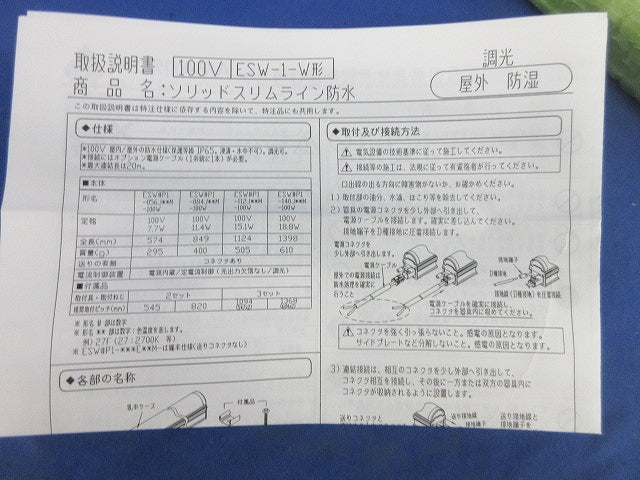 取扱説明書 100V ESW-1-W形
商品名:ソリッドスリムライン防水
調光
屋外 防湿
この取扱説明書は特注仕様に依存する内容を除いて、特注品にも共用します。
◆仕様
*100V 屋内/屋外の防水仕様(保護等級 IP65。浸漬・水中不可)。調光可。
*接続にはオプション電源ケーブル(1系統に1本)が必要。
*最大連結長は20m。
■本体
形名 ESW#P1-056J**M-100W ESW#P1-084J**M-100W ESW#P1-112J**M-100W ESW#P1-140J**M-100W
定格 100V 7.7W 100V 11.4W 100V 15.1W 100V 18.8W
全長(mm) 574 849 1124 1398
質量(g) 295 400 505 610
送りの有無 コネクタあり
電流制御装置 電源内蔵/定電流制御(光出力欠落なし/調光)
■付属品
取付具・取付ねじ 2セット 3セット
推奨取付ピッチ(mm) 545 820 1094 1368
※ 形名 # 部は数字
※ 形名 ** 部は数字:色温度を表します。
例)27F(27:2700K 等)
※ ESW#P1-***E**M-は端末仕様(送りコネクタなし)
◆各部の名称
乳半ケース
付属品
◆取付及び接続方法
電気設備の技術基準に従って施工してください。
接続等の施工は、法規に従って有資格者が行ってください。
口出線の出る方向に障害物がないか、お確かめください。
1) 取付部の油分、水滴、ほこり等を除去してください。
2) 器具の電源コネクタを少し外部へ引き出して、
電源ケーブルを接続します。確実に差し込んでください。
接地端子をD種接地に圧着接続します。
電源コネクタを
少し外部へ引き出します。
電源ケーブル
屋外での電源接続は
防水処理を確実に
行うこと
接地端子
D種接地
接地線(D種接地)を圧着接続
電源ケーブルを確実に接続し、
コネクタを器具内に収めてください。
コネクタを強く引っ張らないこと。感電の原因となります。
サイドプレートなど分解しないこと。感電の原因となります。
3) 連結接続は、相互のコネクタを少し外部へ引き出して、
コネクタ相互を接続し、その後に一方または双方の器具内に
コネクタが収納されるように設置します。
送りコネクタと
送り接地線
接地端子
送り接地線と
接地端子を